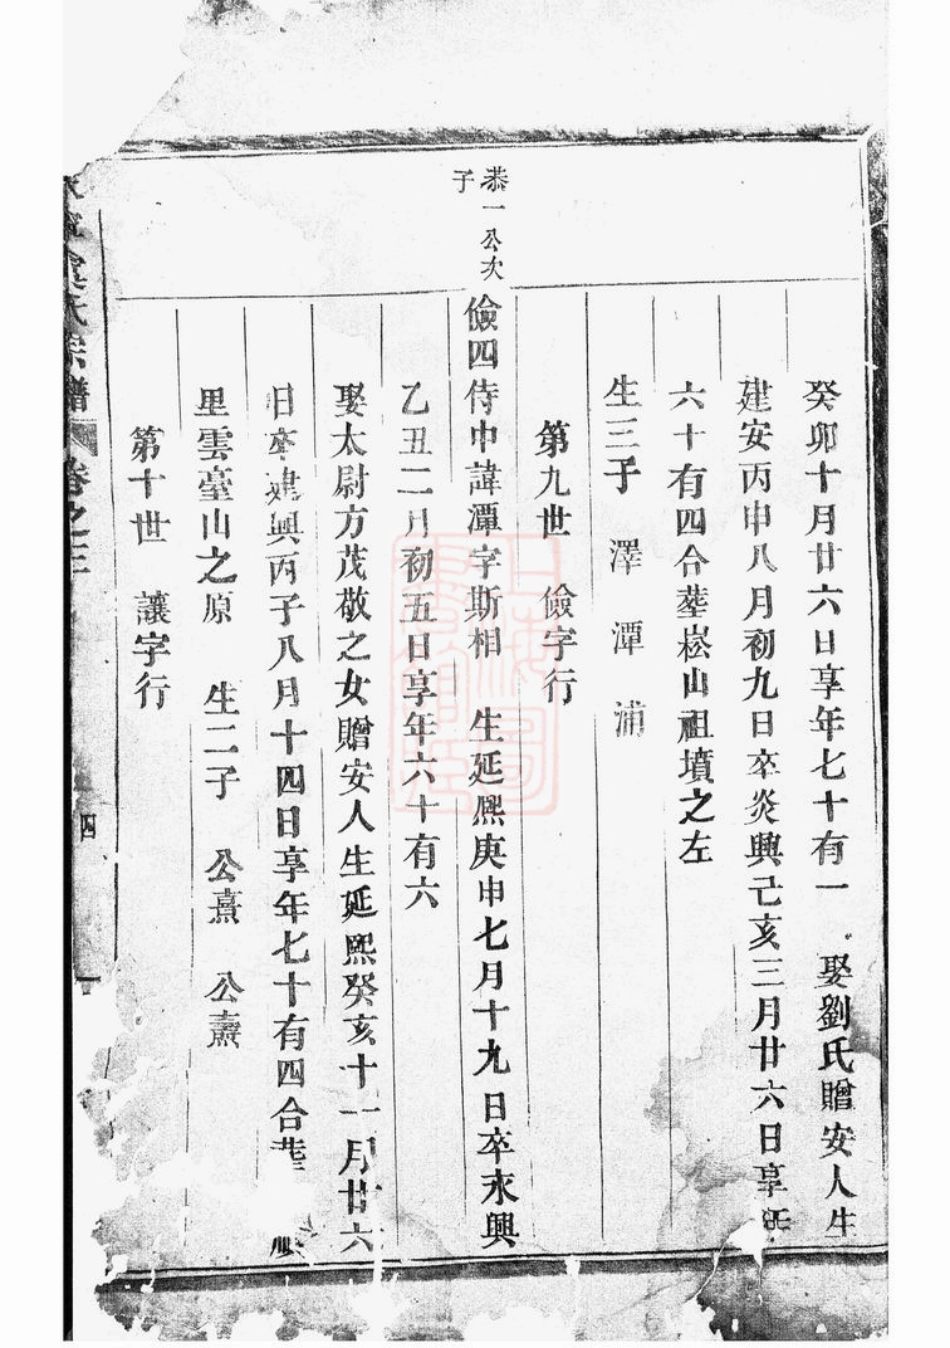 癸卯十月廿六日享年七十有一 娶劉氏贈安人生
建安丙申八月初九日卒炎興己亥三月廿六日享年
六十有四合塟崧山祖墳之左
生三子 澤 潭 浦
第九世 儉字行
恭一公次
子
儉四侍中諱潭字斯相 生延熈庚申七月十九日卒永興
乙丑二月初五日享年六十有六
娶太尉方茂敬之女贈安人生延熙癸亥十一月廿六
日卒建興丙子八月十四日享年七十有四合塟
里雲臺山之原 生二子 公熹 公燾
第十世 讓字行
氏宗譜 卷之三
四